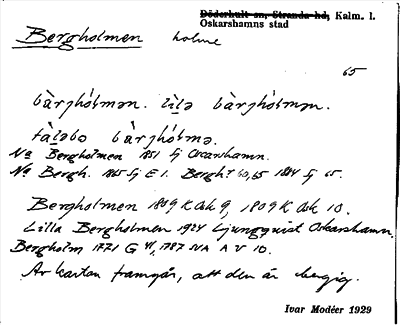 Döderhult sn, Stranda hd, Kalm. l.
Oskarshamns stad
Bergholmen holme
65
bàrghólmən. lìlə bàrghólmən.
tàləbo bàrghólmə.
Na Bergholmen 1851 Oscarshamn.
Na Bergh. 1865 E 1. Bergh 60,65 1884 65.
Bergholmen 1809 K ask 9, 1809 K ask 10.
Lilla Bergholmen 1924 Ljungquist Oskarshamn.
Bergholm 1771 G 1787 NA A V 10.
Av kartan framgår, att den är bergig.
Ivar Modéer 1929